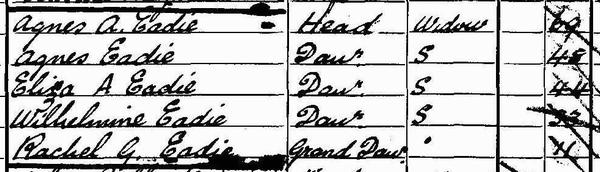 Agnes A. Eadie Head Widow 69
Agnes Eadie Daur S 45
Eliza A Eadie Daur S 44
Wilhelmine Eadie Daur S
Rachel G. Eadie Grand Daur